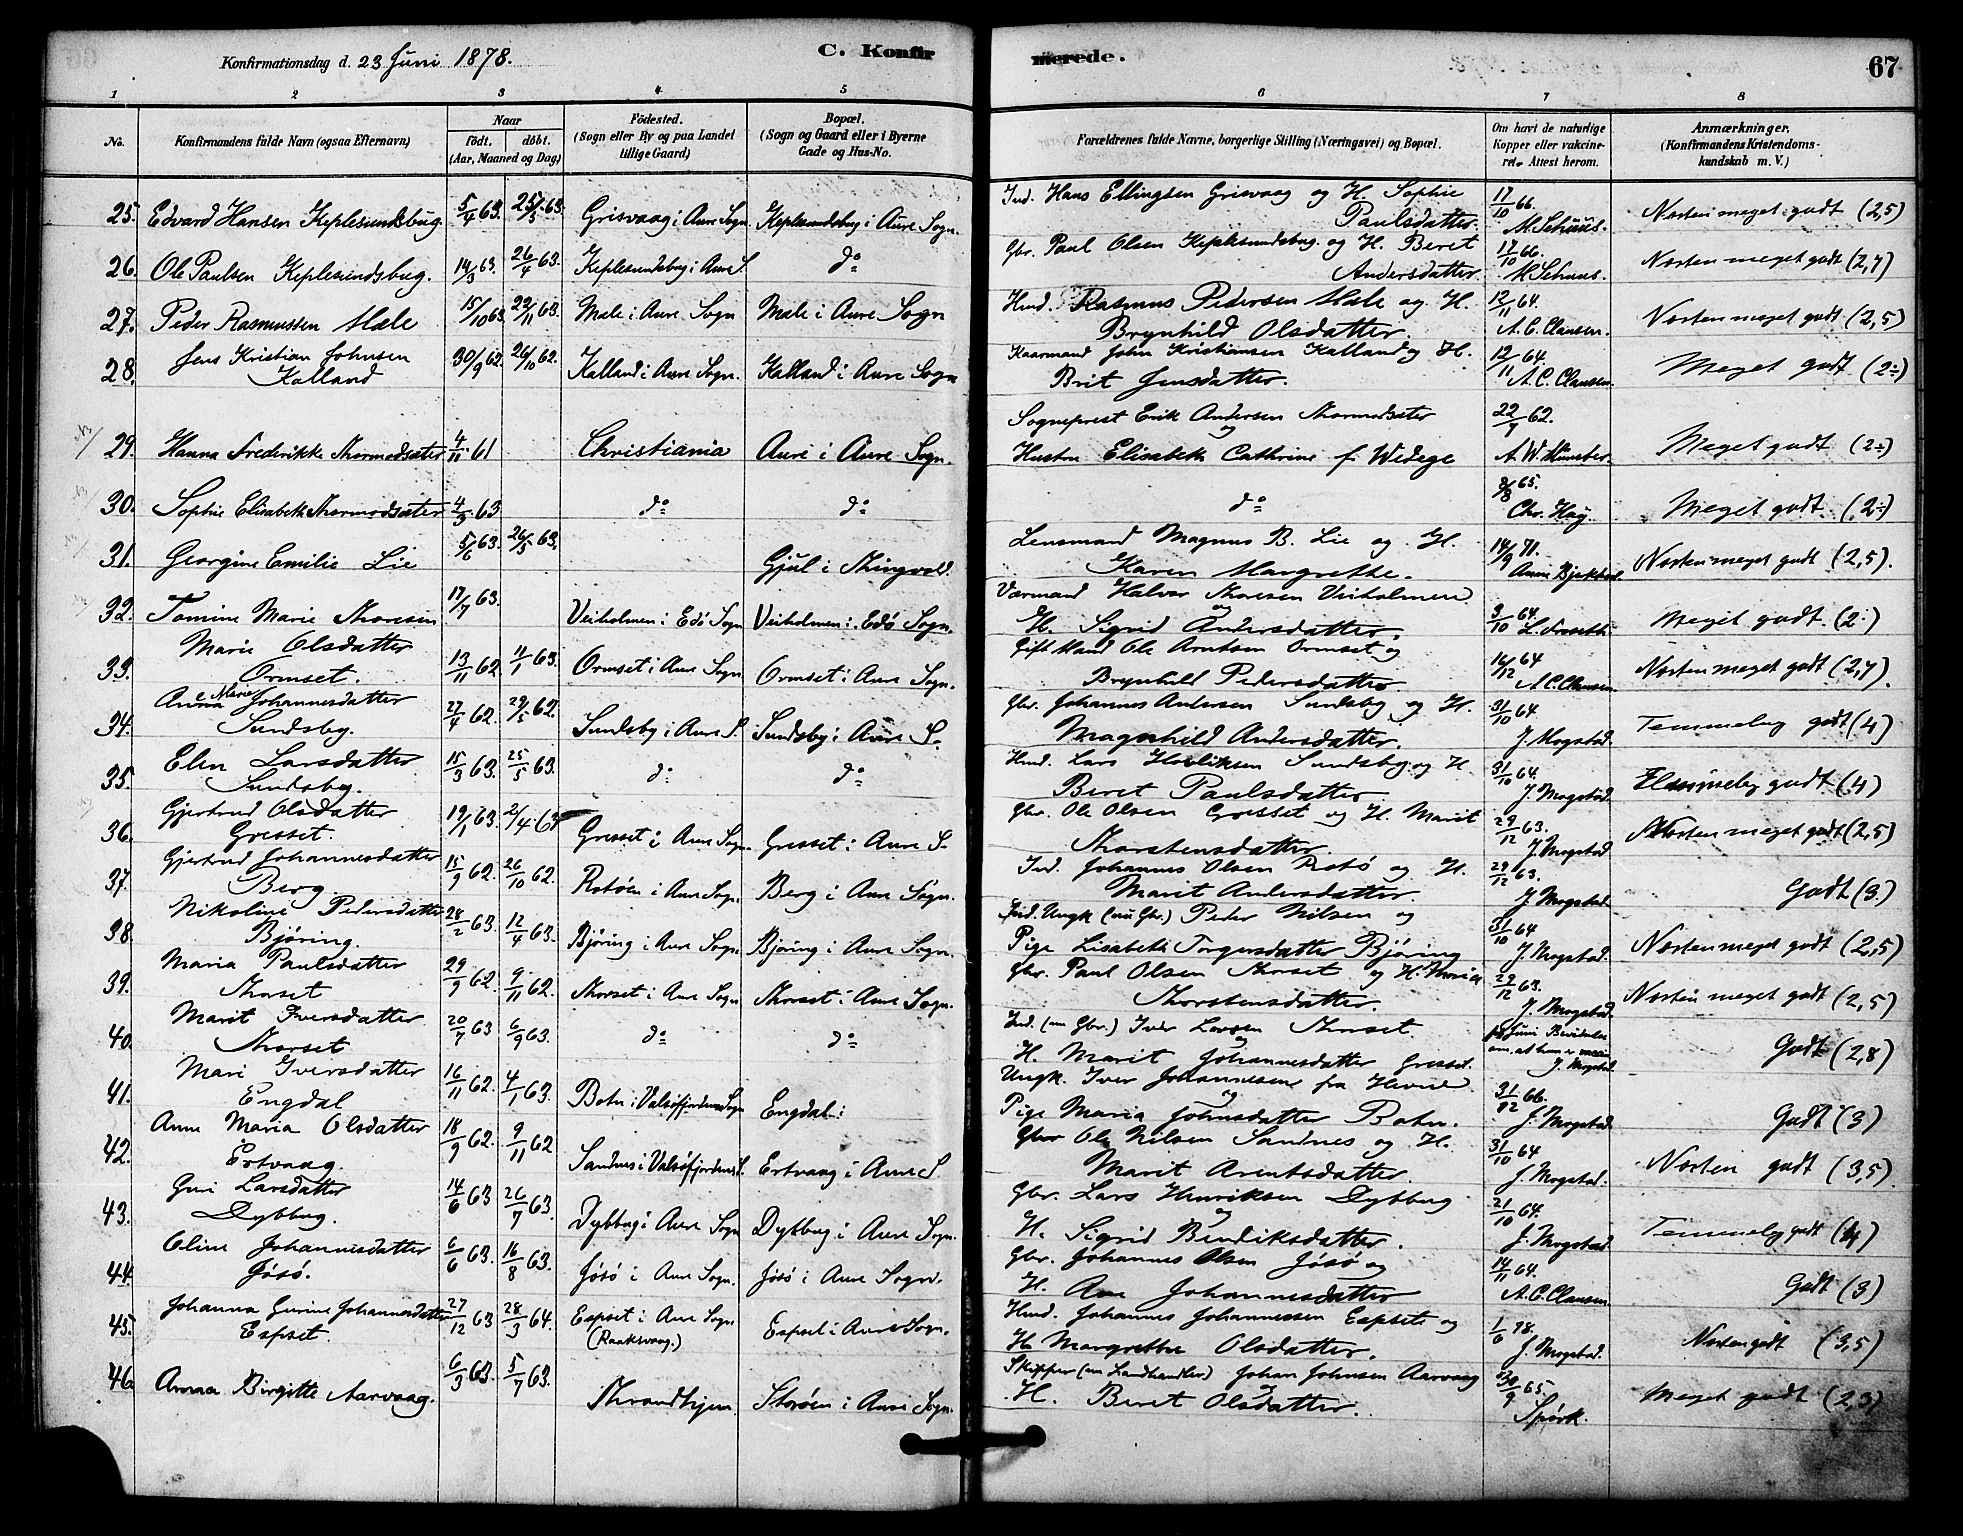 Konfirmationsdag d. 23 Juni 1878.
C. Konfirmerede.
67
1 2 3 4 5 6 7 8
No.
Konfirmandens fulde Navn (ogsaa Efternavn)
Naar
Födt. döbt.
(Aar, Maaned og Dag)
Födested.
(Sogn eller By og paa Landet
tillige Gaard)
Bopæl.
(Sogn og Gaard eller i Byerne
Gade og Hus-No.
Forældrenes fulde Navne, borgerlige Stilling (Næringsvei) og Bopæl.
Om havt de naturlige
Kopper eller vakcine-
ret. Attest herom.
Anmærkninger.
(Konfirmandens Kristendoms-
kundskab m. V.)
25. Edvard Hansen Keplesundsbug. 5/4 63. 25/5 63. Grisvaag i Aure Sogn Keplesundsbug i Aure Sogn. Ind. Hans Ellingsen Grisvaag og H. Sophie
Paulsdatter. 17/10 66. M. Schuus. Næsten meget godt (2,5)
26. Ole Paulsen Keplesundsbug. 14/3 63. 26/4 63. Keplesundsbug i Aure S. do Gbr. Paul Olsen Keplesundsbug. og H. Beret
Andersdatter 17/10 66. M. Schuus. Næsten meget godt (2,7)
27. Peder Rasmussen Mæle 15/10 63 22/11 63. Mæle i Aure Sogn Mæle i Aure Sogn Hmd. Rasmus Pedersen Mæle og H.
Brynhild Olsdatter 12/11 64. A. C. Clausen. Næsten meget godt (2,5)
28. Jens Kristian Johnsen
Kalland 30/9 62. 26/10 62. Kalland i Aure Sogn. Kalland i Aure Sogn Kaarmand John Kristiansen Kalland og H.
Brit Jensdatter. 12/11 64. A. C. Clausen. Meget godt (2÷)
29. Hanna Frederikke Thormodsæter 4/11 61 Christiania Aure i Aure Sogn. Sogneprest Erik Andersen Thormodsæter
og
Hustru Elisabeth Cathrine f. Wedege 22/9 62. A. W. Münster. Meget godt (2÷)
30. Sophie Elisabeth Thormodsæter 4/3 63 do do do 8/8 65. Chr. Høy. Meget godt. (2÷)
31. Georgine Emilie Lie 5/6 63. 26/5 63. Gjul i Thingvold. Lensmand Magnus B. Lie og H.
Karen Margrethe. 14/9 71. Næsten meget godt (2,5).
32. Tomine Marie Thoresen 17/7 63. Veiholmen i Edö Sogn Veiholmen i Edö Sogn. Værmand Halvor Thoresen Veiholmen
og
H. Sigrid Andersdatter. 3/10 64. Meget godt. (2÷)
33. Marie Olsdatter
Ormset. 13/11 62 11/1 63. Ormset i Aure Sogn Ormset i Aure Sogn. Gift Mand Ole Arntsen Ormset og
Brynhild Pedersdatter. 16/12 64 A. C. Clausen Næsten meget godt (2,7).
34. Anna Marie Johannesdatter
Sundsby. 27/4 62. 29/5 62. Sundsby i Aure S. Sundsby i Aure S. Gbr. Johannes Andersen Sundsby og H.
Magnhild Andersdatter. 31/10 64. J. Mogstad. Temmelig godt (4)
35. Elen Larsdatter
Sundsby. 15/3 63. 25/5 63. do do Hmd. Lars Henriksen Sundsby og H
Beret Paulsdatter 31/10 64. J. Mogstad. Temmelig godt (4)
36. Gjertrud Olsdatter
Gresset. 19/1 63. 2/4 63 Gresset i Aure Sogn. Gresset i Aure S. Gbr. Ole Olsen Gresset og H. Marit
Thorstensdatter. 29/12 63. J. Mogstad Næsten meget godt (2,5)
37. Gjertrud Johannesdatter
Berg. 15/9 62. 26/10 62. Rotöen i Aure Sogn. Berg i Aure Sogn. Ind. Johannes Olsen Rotö og H.
Marit Andersdatter. 29/12 63. J. Mogstad. Godt (3.)
38. Nikoline Pedersdatter
Björing. 28/2 63. 12/4 63. Björing i Aure Sogn. Björing i Aure Sogn. Ungk (nu Gbr.) Peder Nilsen og
Pige Lisabeth Torgersdatter Björing 31/10 64 J. Mogstad. Næsten meget godt (2,5)
39. Maria Paulsdatter
Thorset 29/9 62. 9/11 62. Thorset i Aure Sogn Thorset i Aure Sogn. Gbr. Paul Olsen Thorset og H. Maria
Thorstensdatter. 29/12 63. J. Mogstad. Næsten meget godt (2,5)
40. Marit Iversdatter
Thorset 20/7 63 6/9 63. do do Ind. (nu Gbr.) Iver Larsen Thorset.
og
H. Marit Johannesdatter Gresset. J. Mogstad Godt (2,8)
41. Mari Iversdatter
Engdal 16/11 62. 4/1 63. Botn i Valsöfjordens Sogn Engdal i Ungk. Iver Johannesen fra Hevne
og
Pige Maria Johnsdatter Botn. 31/12 66. J. Mogstad. Godt (3)
42. Anne Maria Olsdatter
Ertvaag. 18/9 62. 9/11 62 Sandnes i Valsöfjordens S. Ertvaag i Aure S. Gbr Ole Nilsen Sandnes og H.
Marit Arentsdatter. 31/10 64 J. Mogstad. Næsten godt (3,5).
43. Guri Larsdatter
Dybbug. 14/6 63 26/7 63. Dybbug i Aure Sogn Dybbug i Aure Sogn. Gbr. Lars Henriksen Dybbug
og
H. Sigrid Bendiksdatter. 21/10 64. J. Mogstad Temmelig godt (4)
44. Oline Johannesdatter
Jösö. 6/6 63. 16/8 63. Jösö i Aure Sogn. Jösö i Aure Sogn. Gbr. Johannes Olsen Jösö og
H. Ane Johannesdatter 14/11 64. A. C. Clausen Godt (3)
45. Johanna Gurine Johannesdatter
Espset. 27/12 63 28/3 64. Espset i Aure Sogn
(Raaksvaag.) Espset i Aure Sogn. Hmd. Johannes Johannessen Espset og
H. Margrethe Olsdatter. 1/6 78. J. Mogstad. Næsten godt (3,5)
46. Anna Birgitte Aarvaag. 6/3 63. 5/7 63. Throndhjem. Storöen i Aure Sogn. Skipper (nu Landhandler) Johan Johnsen Aarvaag
og
H. Beret Olsdatter. 30/9 65. Spörk. Meget godt (2,3)